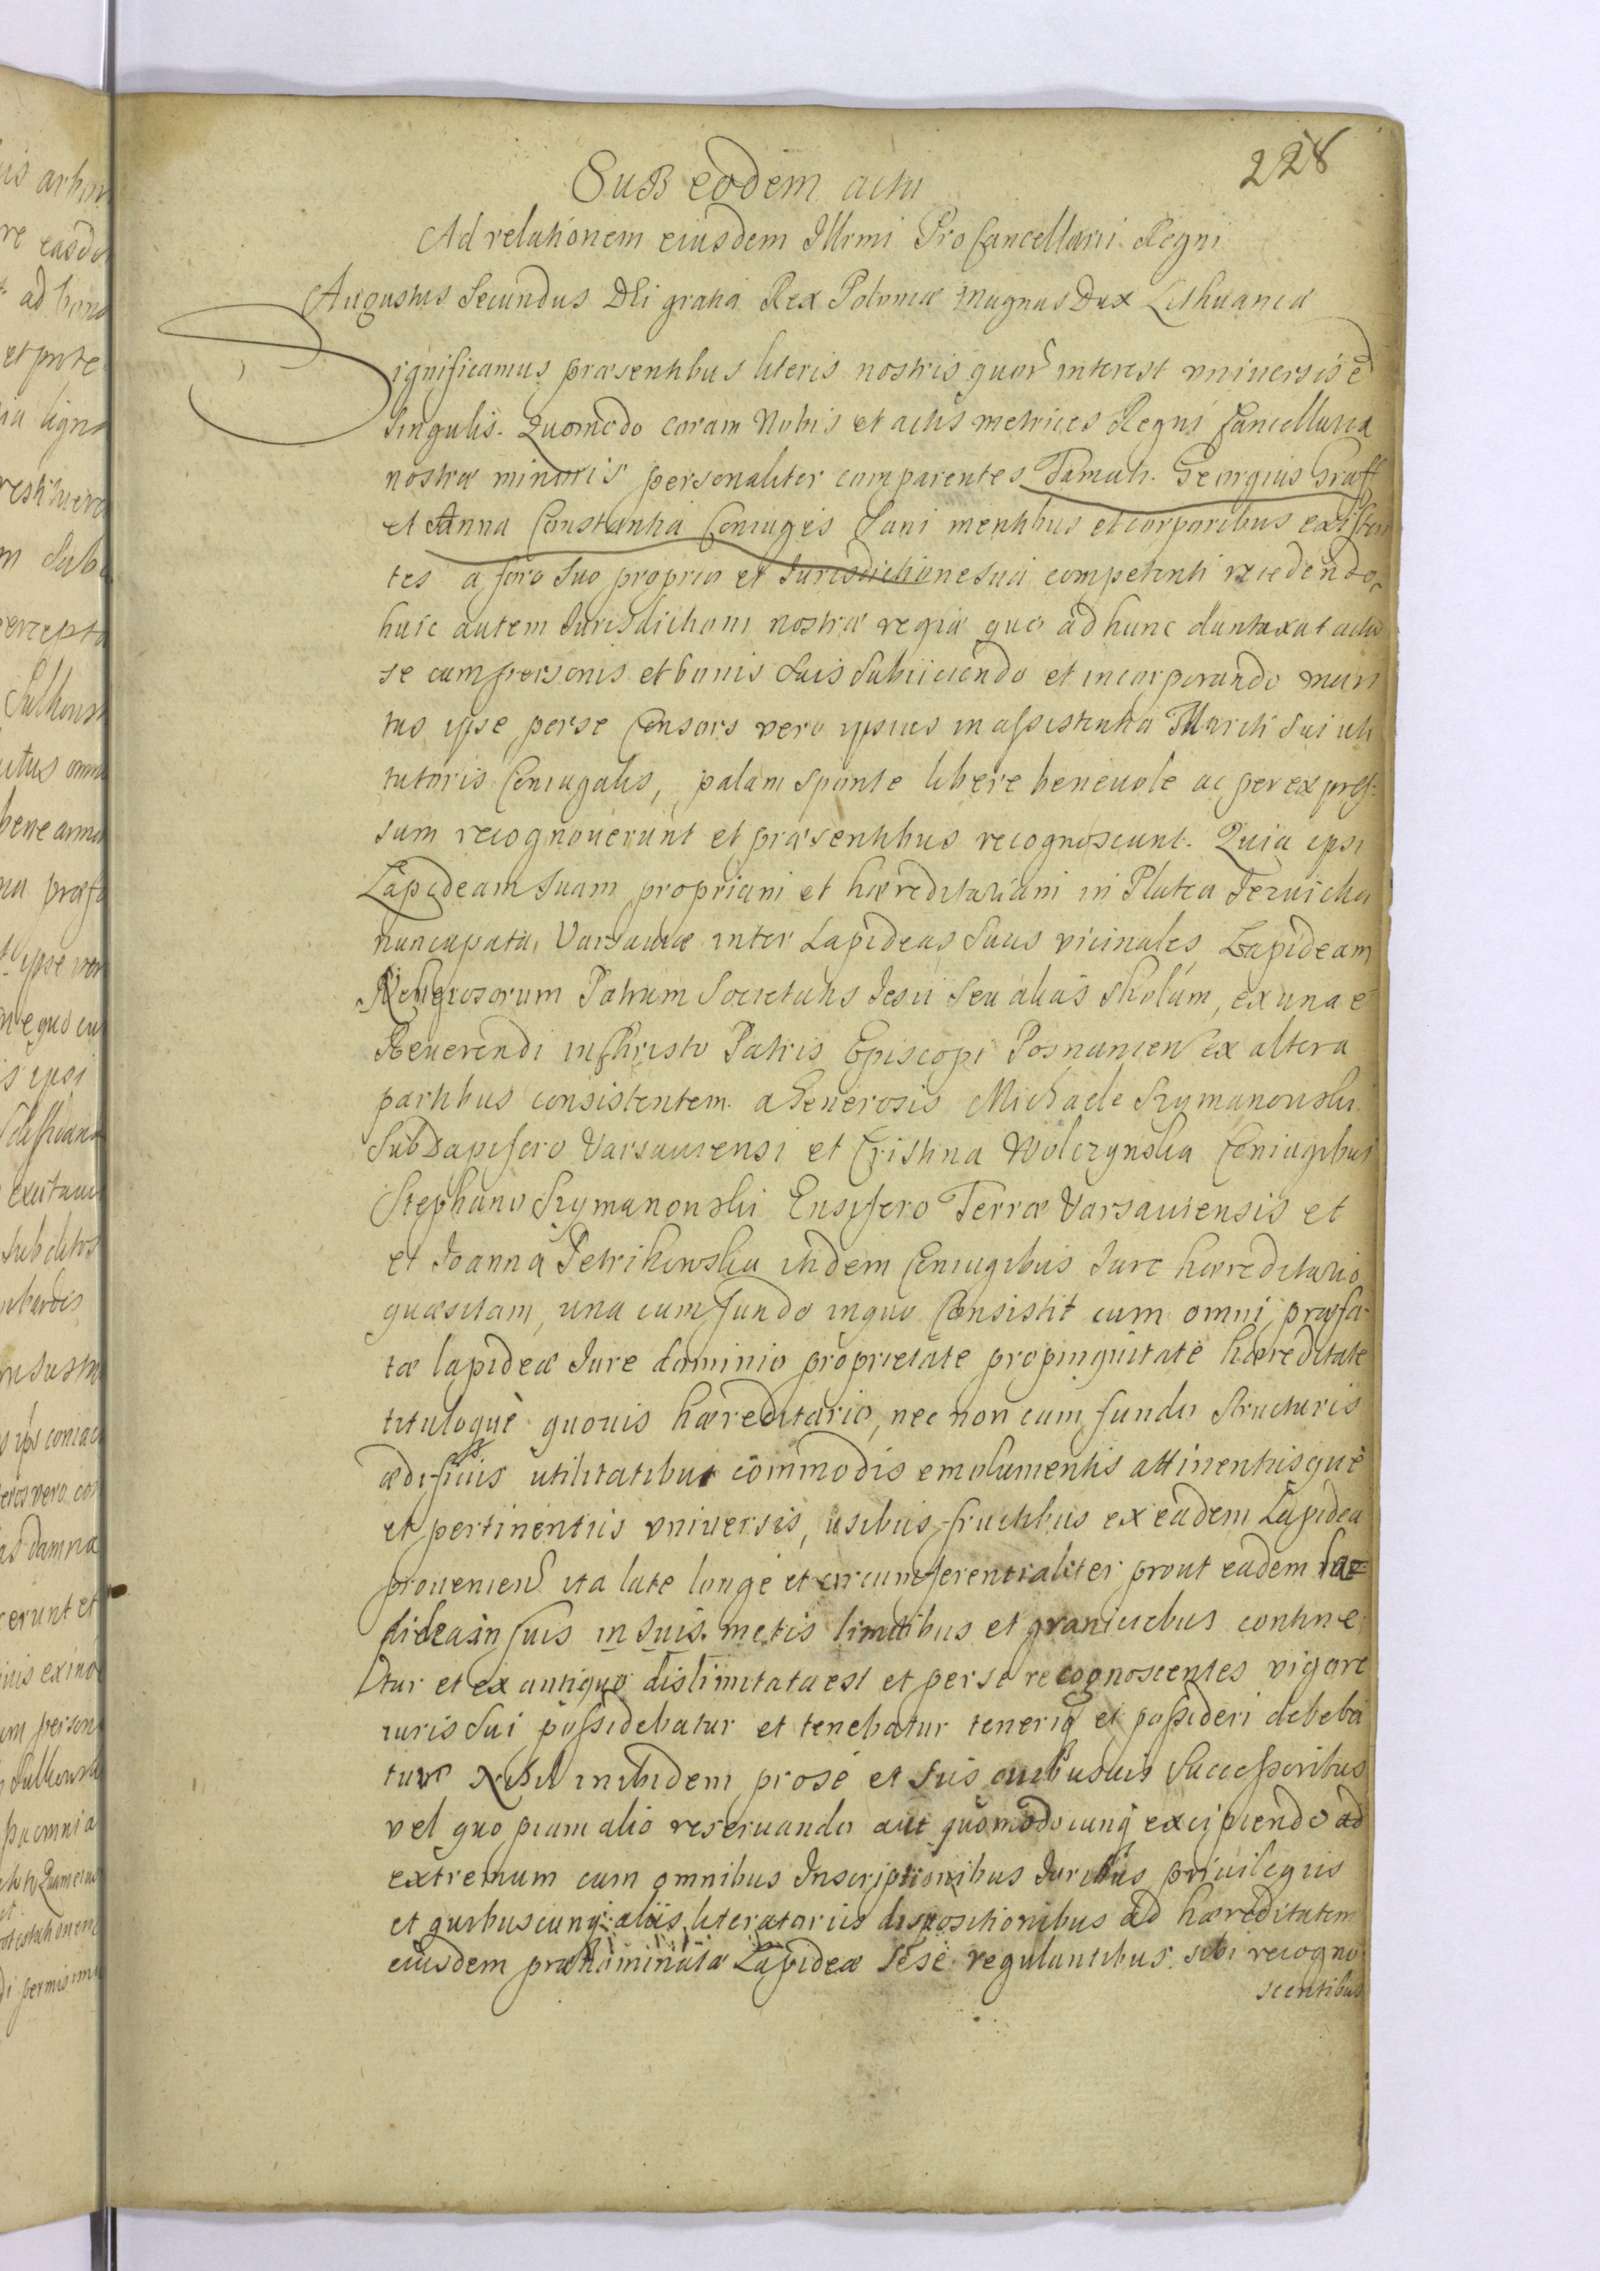 228
Sub eodem actu
Ad relationem eiusdem Illrmi Pro Cancellarii Regni
Augustus Secundus Dei gratia Rex Poloniæ Magnus Dux Lithuaniæ
Significamus præsentibus literis nostris quor interest universis et
singulis. Quomodo coram Nobis et actis metrices Regni Cancellariæ
nostræ minoris personaliter comparentes Famati. Georgius Graff
et Anna Constantia Coniuges Sani mentibus et corporibus existen
tes a foro suo proprio et Jurisdictione sua competenti recedendo
huic autem Jurisdictioni nostræ regiæ quo ad hunc duntaxat actu
se cum personis et bonis suis subiiciendo et incorporando mari
tus ipse per se Consors vero ipsius in assistentia Mariti sui uti
tutoris Coniugalis, palam sponte libere beneuole ac per expres:
sum recognouerunt et præsentibus recognoscunt. Quia ipsi
Lapideam suam propriam et hæreditariam in Platea Jezuicka
nuncupata, Varsauiæ inter Lapideas suas vicinales, Lapideam
Religiosorum Patrum Societatis Jesu seu alias Skolam, ex una et
Reuerendi in Christo Patris Episcopi Posnanien ex altera
partibus consistentem. a Generosis Michaele Szymanouski
SubDapifero Varsauiensi et Cristina Wolczynska Coniugibus
Stephano Szymanouski Ensifero Terræ Varsauiensis et
et Joanna Petrikowska itidem Coniugibus Jure hæreditario
quæsitam, una cum fundo in quo Consistit cum omni præfa-
tæ lapideæ Jure dominio proprietate propinquitate hæreditate
tituloquè quouis hæreditario, nec non cum fundo structuris
ædificiis utilitatibus commodis emolumentis attinentiisquè
et pertinentiis vniuersis, usibus, fructibus ex eadem Lapidea
prouenien ita late longe et circumferentialiter prout eadem La=
pidea in suis in suis metis limitibus et graniciebus contine
tur et ex antiquo dislimitata est et per se recognoscentes vigore
iuris sui possidebatur et tenebatur teneriq et possideri debeba
tur Nihil inibidem pro se et suis quibusuis Successoribus
vel quo piam alio reseruando aut quomodocunq excipiendo ad
extremum cum omnibus Inscriptionibus Juribus priuilegiis
et quibuscunq aliis literatoriis dispositionibus ad hæreditatem
eiusdem prænominatæ Lapideæ sese regulantibus. sibi recogno
scentibus